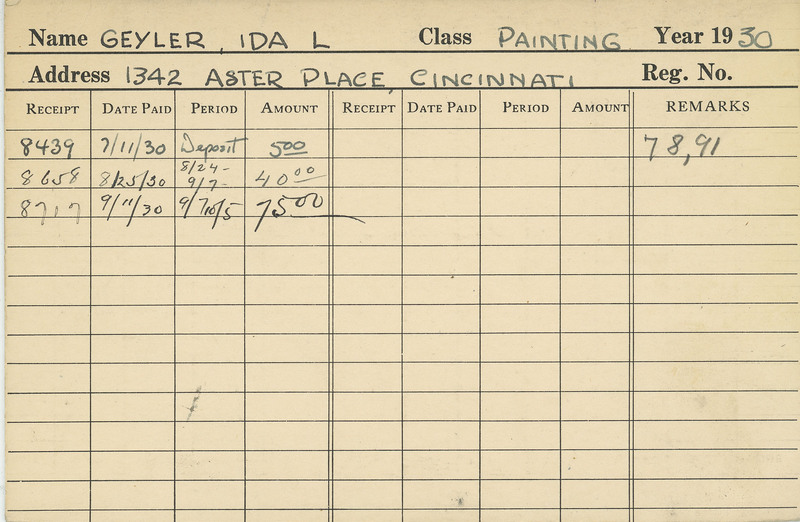 Name GEYLER, IDA L Class PAINTING Year 1930
Address 1342 ASTER PLACE, CINCINNATI Reg. No.
RECEIPT DATE PAID PERIOD AMOUNT RECEIPT DATE PAID PERIOD AMOUNT REMARKS
8439 7/11/30 Deposit 5.00 78,91
8658 8/25/30 8/24- 9/7- 40.00
8717 9/11/30 9/7 10/5 75.00